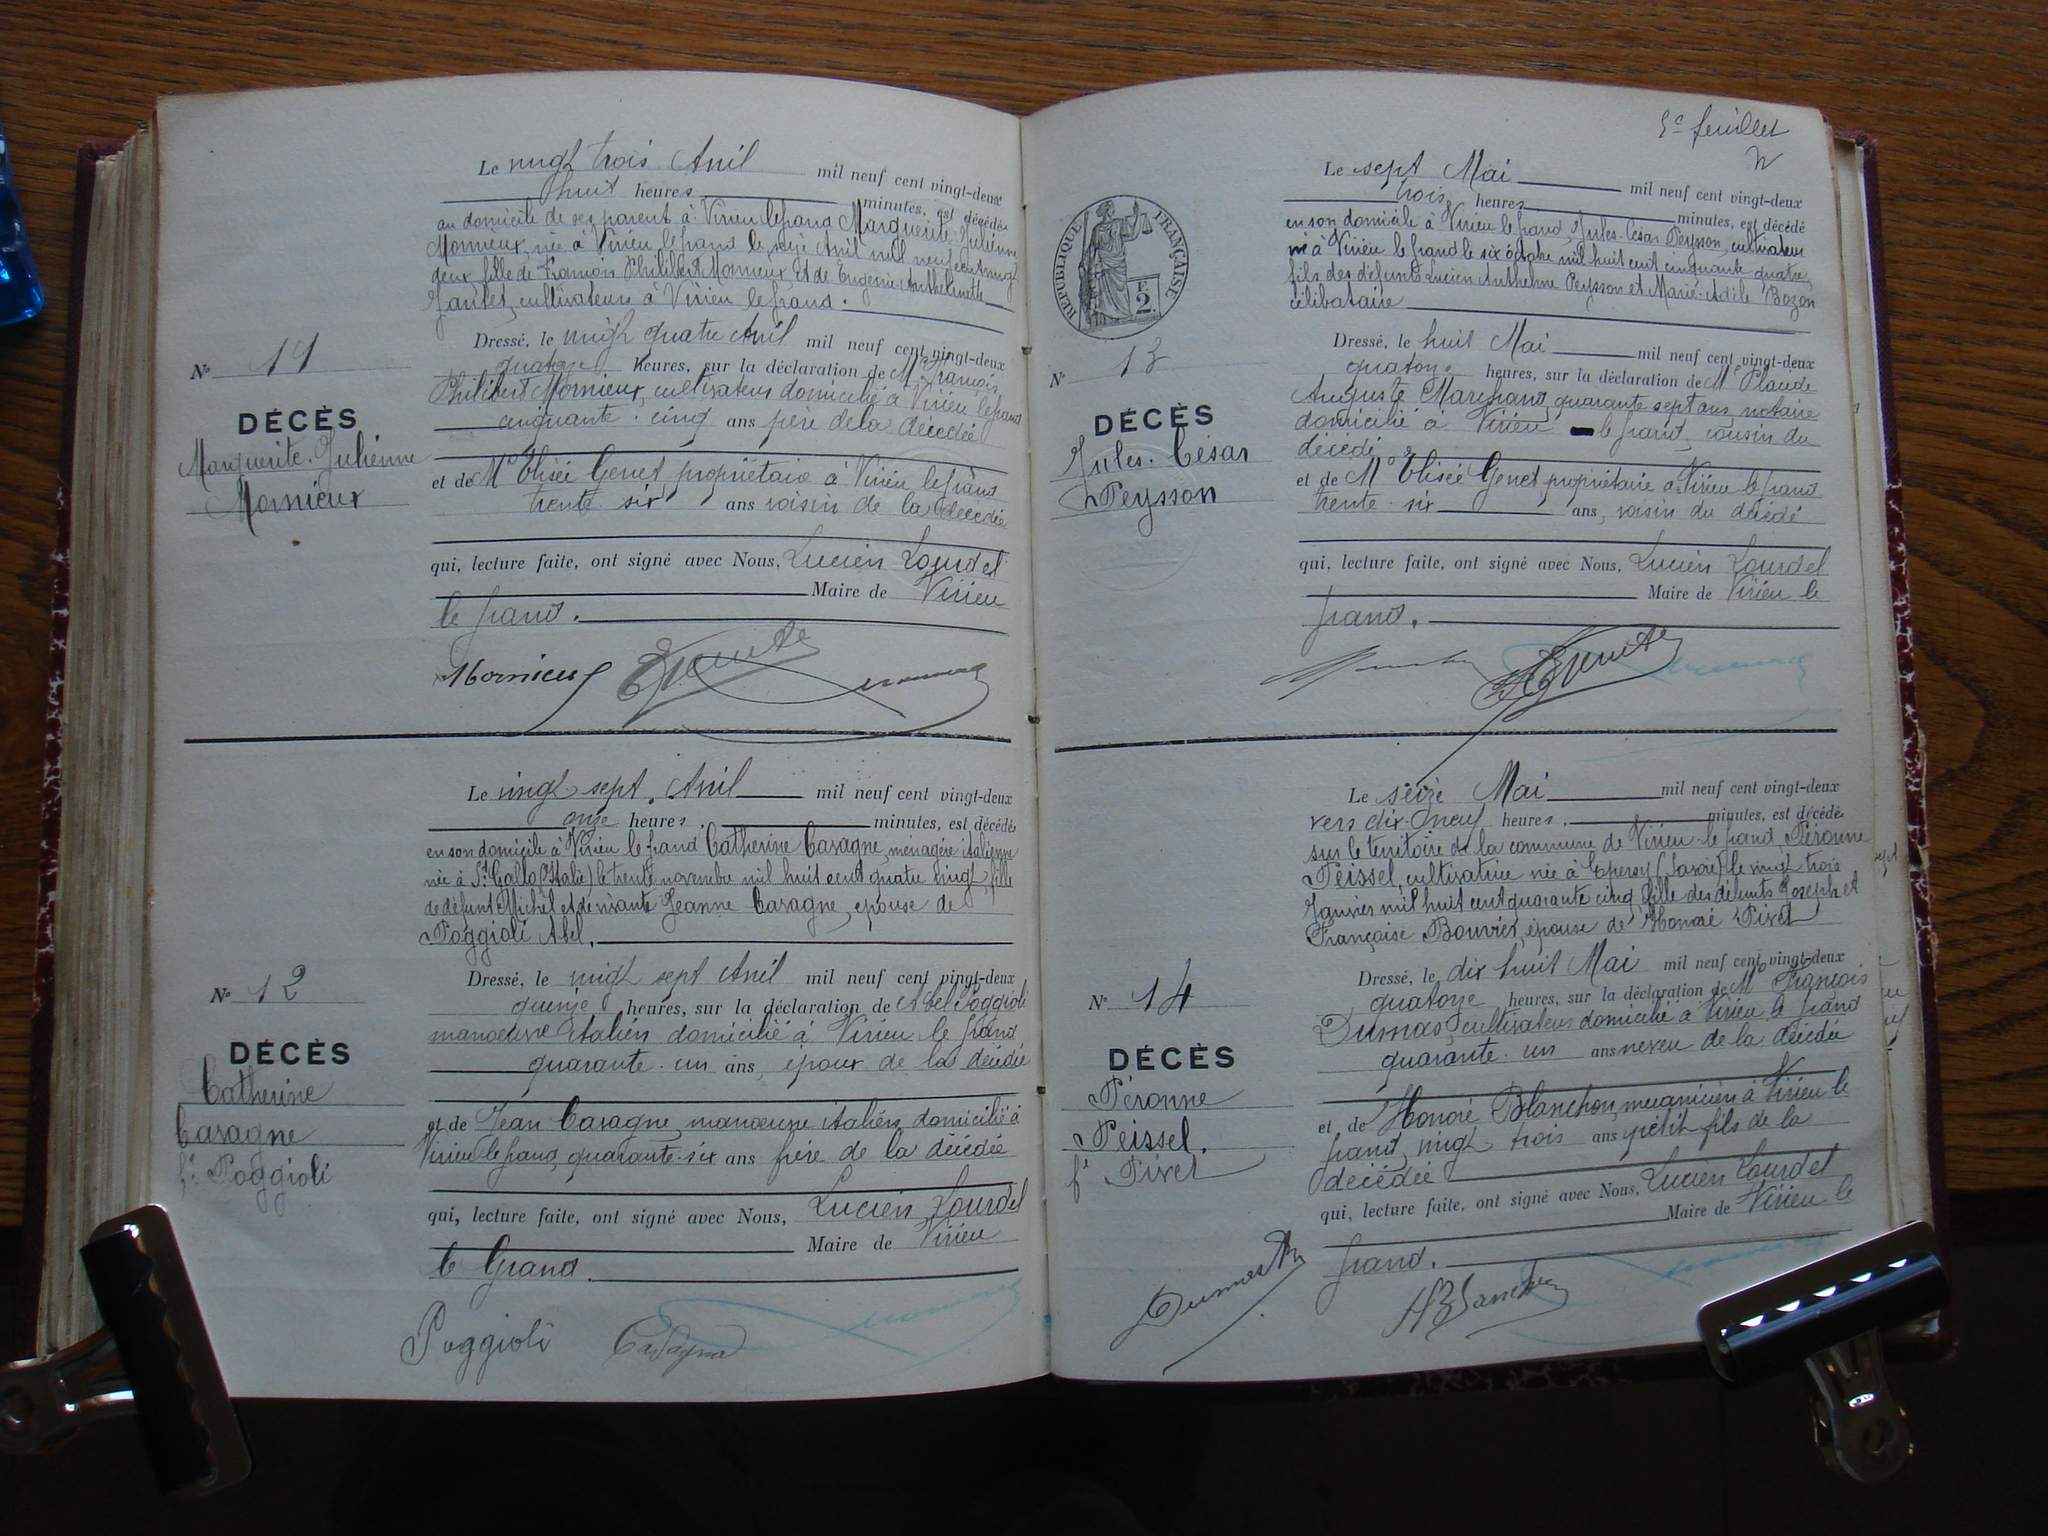 Le vingt trois Avril mil neuf cent vingt-deux
huit heures minutes, est décédée
au domicile de ses parent à Virieu le grand Marguerite Julienne
Mornieux, née à Virieu le grand le seize Avril mil neuf cent vingt
deux, fille de François Philibert Mornieux et de Eugénie Anthelmette
cultivateurs à Virieu le grand.
Nº 11
DÉCÈS
Marguerite. Julienne
Mornieux
Dressé, le vingt quatre Avril mil neuf cent vingt-deux
quatorze heures, sur la déclaration de Mr François
Philibert Mornieux, cultivateur domicilié à Virieu le grand
cinquante. cinq ans père de la décédée
et de Mr Elisée Genet propriétaire à Virieu le grand
trente six ans voisin de la décédée
qui, lecture faite, ont signé avec Nous, Lucien Lourdel
Maire de Virieu
le grand.
Mornieux
Le vingt sept. Avril mil neuf cent vingt-deux
onze heures minutes, est décédée
en son domicile à Virieu le grand Catherine Casagne, ménagère italienne
née à St Gallo (Italie) le trente novembre mil huit cent quatre vingt, fille
de défunt Michel et de vivante Jeanne Casagne, épouse de
Poggioli Abel.
Nº 12
DÉCÈS
Catherine
Casagne
fe Poggioli
Dressé, le vingt sept Avril mil neuf cent vingt-deux
quinze heures, sur la déclaration de Abel Poggioli
manoeuvre italien domicilié à Virieu le grand
quarante. un ans, époux de la décédée
et de Jean Casagne, manoeuvre italien, domicilié à
Virieu le grand, quarante. six ans frère de la décédée
qui, lecture faite, ont signé avec Nous, Lucien Lourdel
Maire de Virieu
le Grand.
Poggioli Casagna
5e feuillet
RÉPUBLIQUE FRANÇAISE
F.
2.
Le sept Mai mil neuf cent vingt-deux
trois heures minutes, est décédé
en son domicile à Virieu le grand, Jules. César Peysson, cultivateur
né à Virieu le grand le six octobre mil huit cent cinquante quatre,
fils des défunts Lucien Anthelme Peysson et Marie. Adèle Bozon
célibataire
Nº 13
DÉCÈS
Jules. César
Peysson
Dressé, le huit Mai mil neuf cent vingt-deux
quatorze heures, sur la déclaration de Mr Claude
Auguste Marchand, quarante sept ans, notaire
domicilié à Virieu le grand, cousin du
décédé
et de Mr Elisée Genet, propriétaire à Virieu le grand
trente. six ans, voisin du décédé
qui, lecture faite, ont signé avec Nous, Lucien Lourdel
Maire de Virieu le
grand.
Le seize Mai mil neuf cent vingt-deux
vers dix. neuf heures, minutes, est décédée
sur le territoire de la commune de Virieu le grand, Péronne
Peissel, cultivatrice née à Epersy (Savoie) le vingt trois
Janvier mil huit cent quarante cinq, fille des défunts Joseph et
Françoise Bouvier, épouse de Honoré Pivet
Nº 14
DÉCÈS
Péronne
Peissel.
fe Pivet
Dressé, le dix huit Mai mil neuf cent vingt-deux
quatorze heures, sur la déclaration de Mr François
Dumas, cultivateur domicilié à Virieu le grand
quarante. un ans neveu de la décédée
et de Honoré Blanchon, mécanicien à Virieu le
grand, vingt trois ans petit fils de la
décédée
qui, lecture faite, ont signé avec Nous, Lucien Lourdel
Maire de Virieu le
grand.